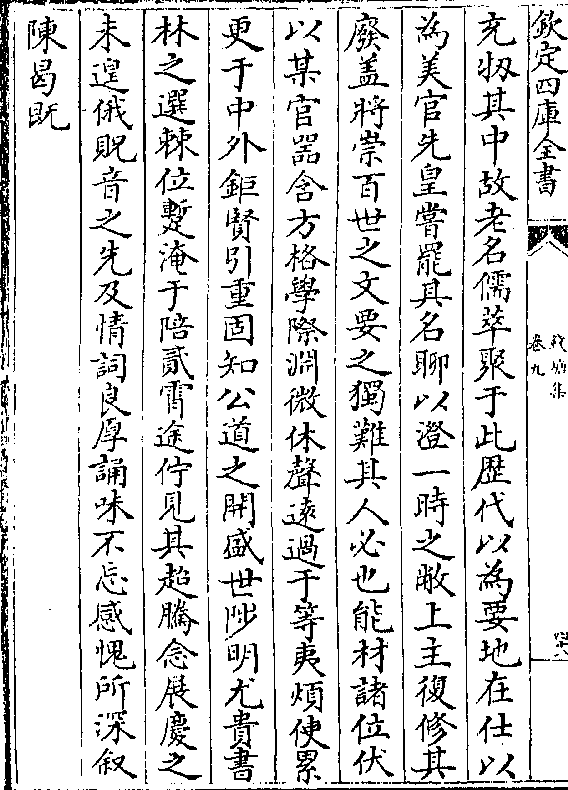 欽定四庫全書
卷九
充牣其中故老名儒萃聚于此歴代以為要地在仕以
為美官先皇嘗罷其名聊以澄一時之敝上主復修其
廢盖將崇百世之文要之獨難其人必也能材諸位伏
以某官器含方格學際淵微休聲逺過于等夷煩使累
更于中外鉅賢引重固知公道之開盛世陟明尤貴書
林之選棘位蹔淹于陪貳霄途佇見其超騰念展慶之
未遑俄貺音之先及情詞良厚誦味不忘感愧所深叙
陳曷既